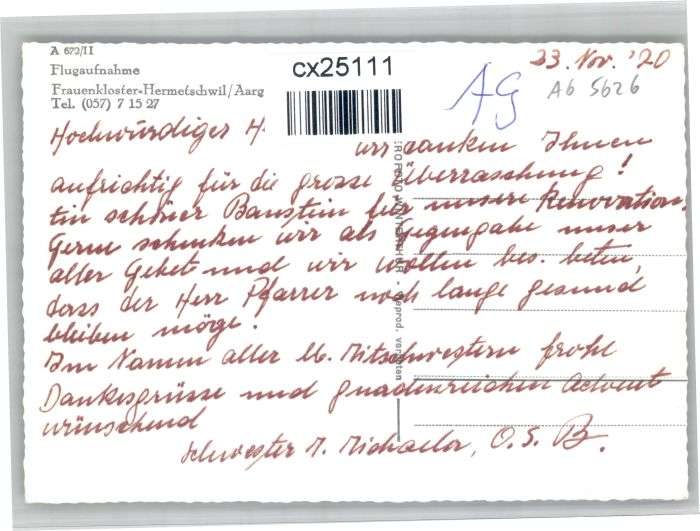 A 672/II
Flugaufnahme
Frauenkloster-Hermetschwil/Aarg
Tel. (057) 7 15 27
cx25111
AG
23. Nov. '70
AG 5626
Hochwürdiger H.
wir danken Ihnen
aufrichtig für die grosse Überraschung!
Ein schöner Baustein für unsere Renovation.
Gerne schenken wir als Gegengabe unser
aller Gebet und wir wollen bes. beten,
dass der Herr Pfarrer noch lange gesund
bleiben möge.
Im Namen aller lb. Mitschwestern frohe
Dankesgrüsse und gnadenreichen Advent
wünschend
Schwester M. Michaela, O.S.B.
- Reprod. verboten